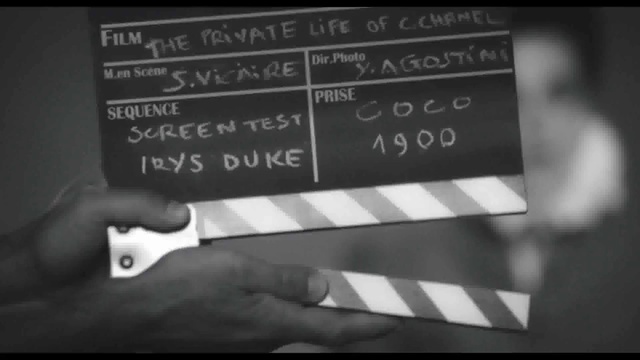 FILM THE PRIVATE LIFE OF C.CHANEL
M.en Scène S.VICAIRE
Dir.Photo Y.AGOSTINI
SEQUENCE
SCREEN TEST
IRYS DUKE
PRISE
COCO
1900